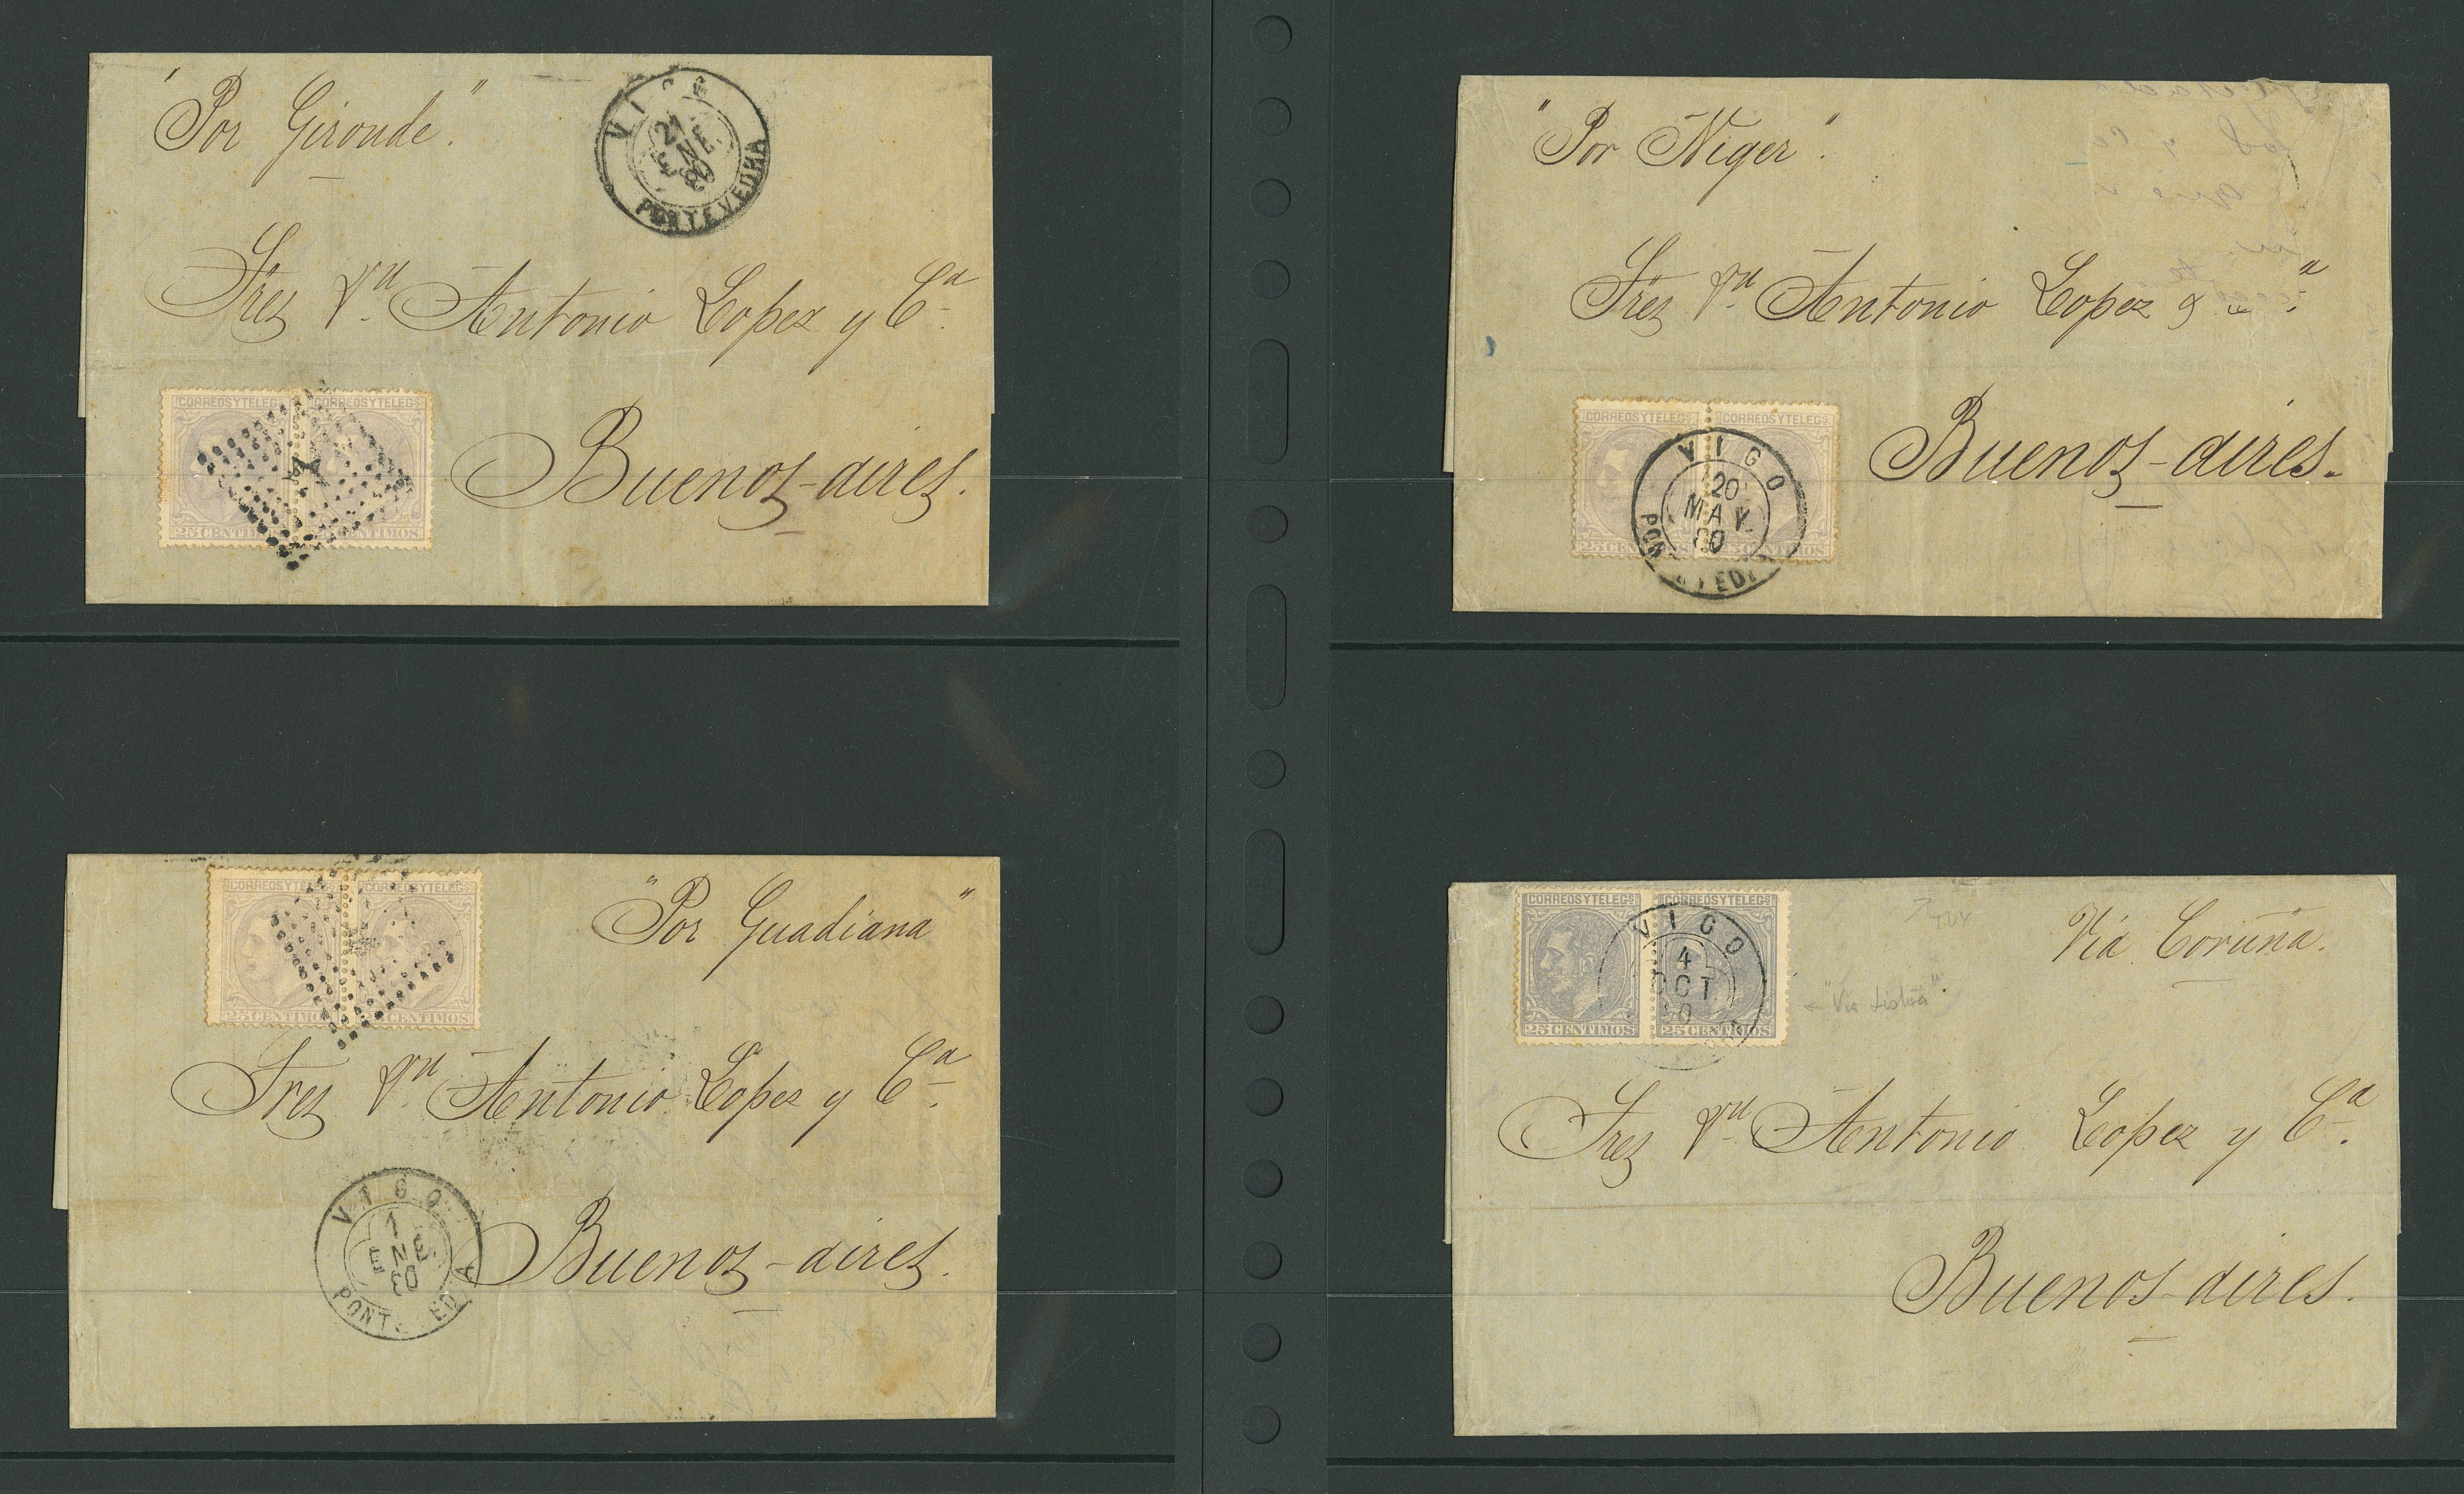 "Por Gironde."
VIGO
21
ENE
80
PONTEVEDRA
Sres Vda Antonio Lopez y Ca.
CORREOS Y TELEGS
CORREOS Y TELEGS
25 CENTI
CENTIMOS
Buenos-aires.
"Por Niger".
Sres Vda Antonio Lopez y
CORREOS Y TELEGS
CORREOS Y TELEGS
25 CENTIMOS
VIGO
20
MAY.
80
Buenos-aires.
CORREOS Y TELEGS
CORREOS Y TELEGS
25 CENTIMOS
CENTIMOS
"Por Guadiana"
Sres Vda Antonio Lopez y Ca.
VIGO
1
ENE.
80
Buenos-aires.
CORREOS Y TELEGS
CORREOS Y TELEGS
25 CENTIMOS
25 CENTIMOS
VIGO
4
OCT
TUY
Via Coruña.
← "Via Lisboa"
Sres Vda Antonio Lopez y Ca.
Buenos-aires.